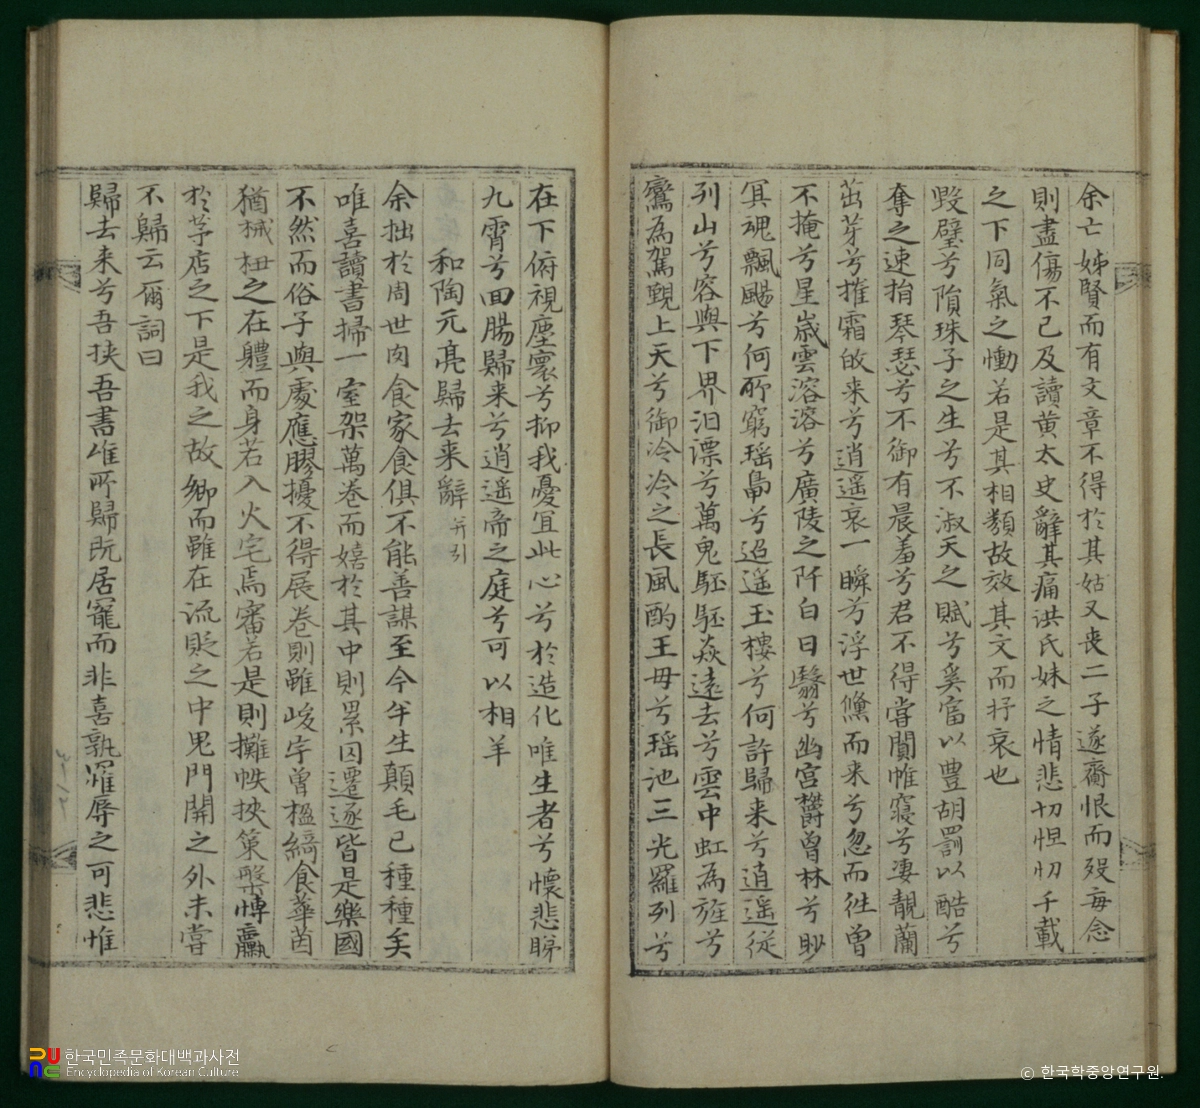 余亡姊賢而有文章不得於其姑又喪二子遂齎恨而歿每念
則盡傷不已及讀黃太史辭其痛洪氏妹之情悲切怛怛千載
之下同氣之慟若是其相類故效其文而抒哀也
毀璧兮隕珠子之生兮不淑天之賦兮奚富以豊胡罰以酷兮
奪之速捐琴瑟兮不御有晨羞兮君不得嘗閴帷寢兮凄靚蘭
茁芽兮摧霜皈来兮逍遥哀一瞬兮浮世儵而来兮忽而徃曾
不掩兮星嵗雲溶溶兮廣陵之阡白日翳兮幽宫欝曾林兮眇
冥魂飄颺兮何所窮瑶鳧兮迢遥玉樓兮何許歸来兮逍遥従
列山兮容與下界汨漂兮萬鬼駓駓焱遠去兮雲中虹為旌兮
鸞為駕觐上天兮御冷冷之長風酌王母兮瑶池三光羅列兮
在下俯視塵寰兮抑我憂宜此心兮於造化唯生者兮懷悲睇
九霄兮回腸歸来兮逍遥帝之庭兮可以相羊
和陶元亮歸去来辭 并引
余拙於周世肉食家食俱不能善謀至今半生顛毛已種種矣
唯喜讀書掃一室架萬卷而嬉於其中則累囚遷逐皆是樂國
不然而俗子與處應膠擾不得展卷則雖峻宇曾楹綺食華茵
猶械杻之在軆而身若入火宅焉審若是則攤帙挾策槃愽贏
於茅店之下是我之故鄉而雖在流貶之中鬼門開之外未嘗
不歸云爾詞曰
歸去来兮吾挟吾書唯所歸既居寵而非喜孰罹辱之可悲惟
한국민족문화대백과사전
Encyclopedia of Korean Culture
ⓒ 한국학중앙연구원.